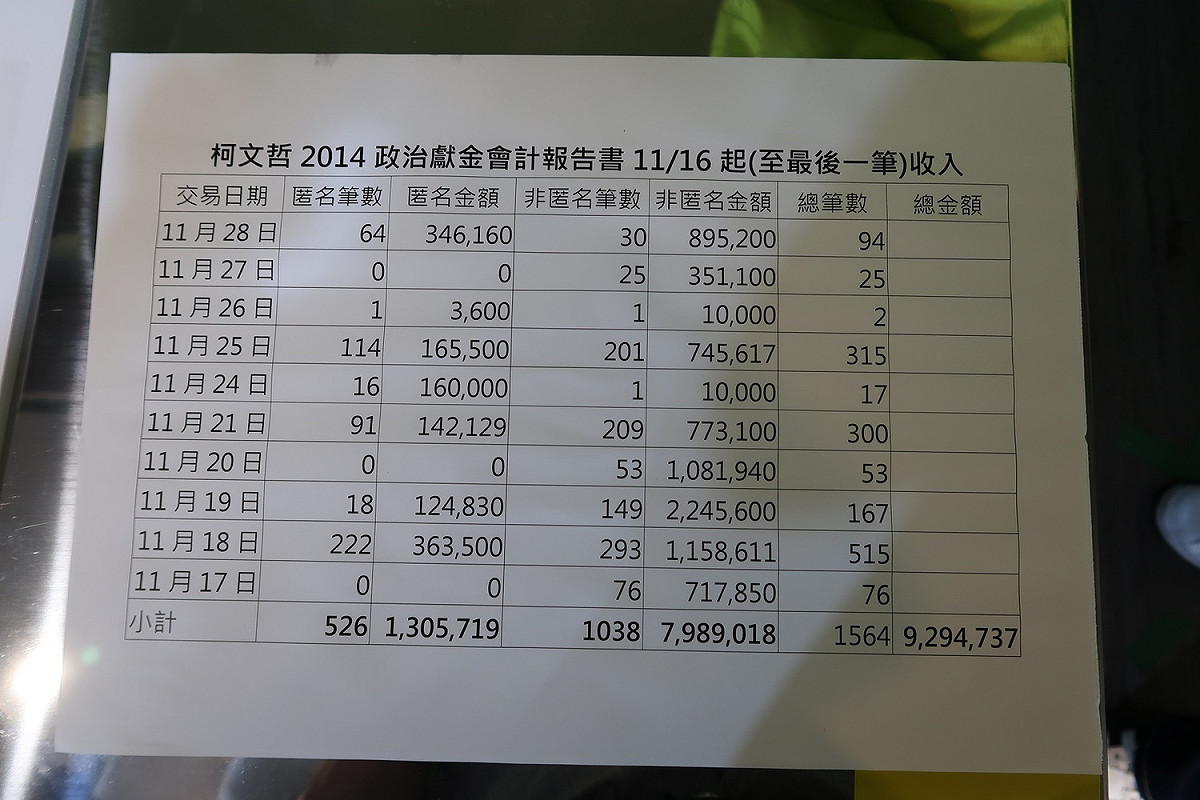 柯文哲 2014 政治獻金會計報告書 11/16 起(至最後一筆)收入
交易日期 匿名筆數 匿名金額 非匿名筆數 非匿名金額 總筆數 總金額
11 月 28 日 64 346,160 30 895,200 94
11 月 27 日 0 0 25 351,100 25
11 月 26 日 1 3,600 1 10,000 2
11 月 25 日 114 165,500 201 745,617 315
11 月 24 日 16 160,000 1 10,000 17
11 月 21 日 91 142,129 209 773,100 300
11 月 20 日 0 0 53 1,081,940 53
11 月 19 日 18 124,830 149 2,245,600 167
11 月 18 日 222 363,500 293 1,158,611 515
11 月 17 日 0 0 76 717,850 76
小計 526 1,305,719 1038 7,989,018 1564 9,294,737